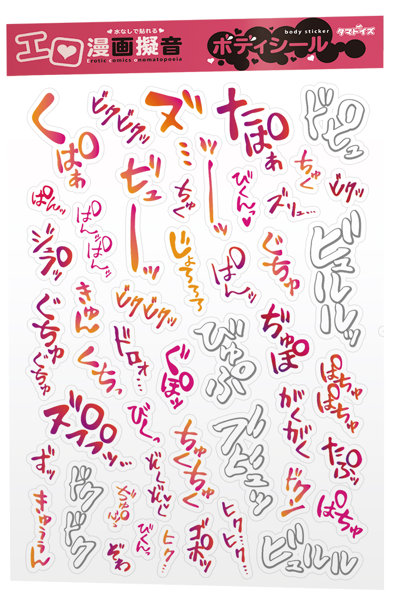 水なしで貼れる
エロ漫画擬音
Erotic Comics Onomatopoeia
ボディシール
body sticker
タマトイズ
くぱぁ
ビクビクッ
ズ…ーーッ
たぽぉ
ドピュ
ビューーッ
ちゅく
びくんっ
ちゅく
ビクッ
ズリュ…
ぱんッ
ぱんッぱんッ
じょろろろ
ぱんッ
じちゅ
ビュルルッ
ジュプッ
きゅん
ビクビクッ
ぐちゅぐちゅ
くちっ
ドロォ…
ぐぽッ
びゅぷ
ぢゅぽ
ぱちゅぱちゅ
がくがく
ズププッ…
びくっ
ちゅくちゅく
ズビュッ
たぷッ
ずッ
ドクドク
ぞくぞく
ドクン
ぱちゅ
きゅぅぅん
ぞわ
びくんっ
ヒク…
ゴポッ
ヒクヒク…
ビュルル